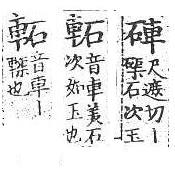 硨
尺遮切丨
磲石次玉
音車美石
次如玉也
音車丨
磲也